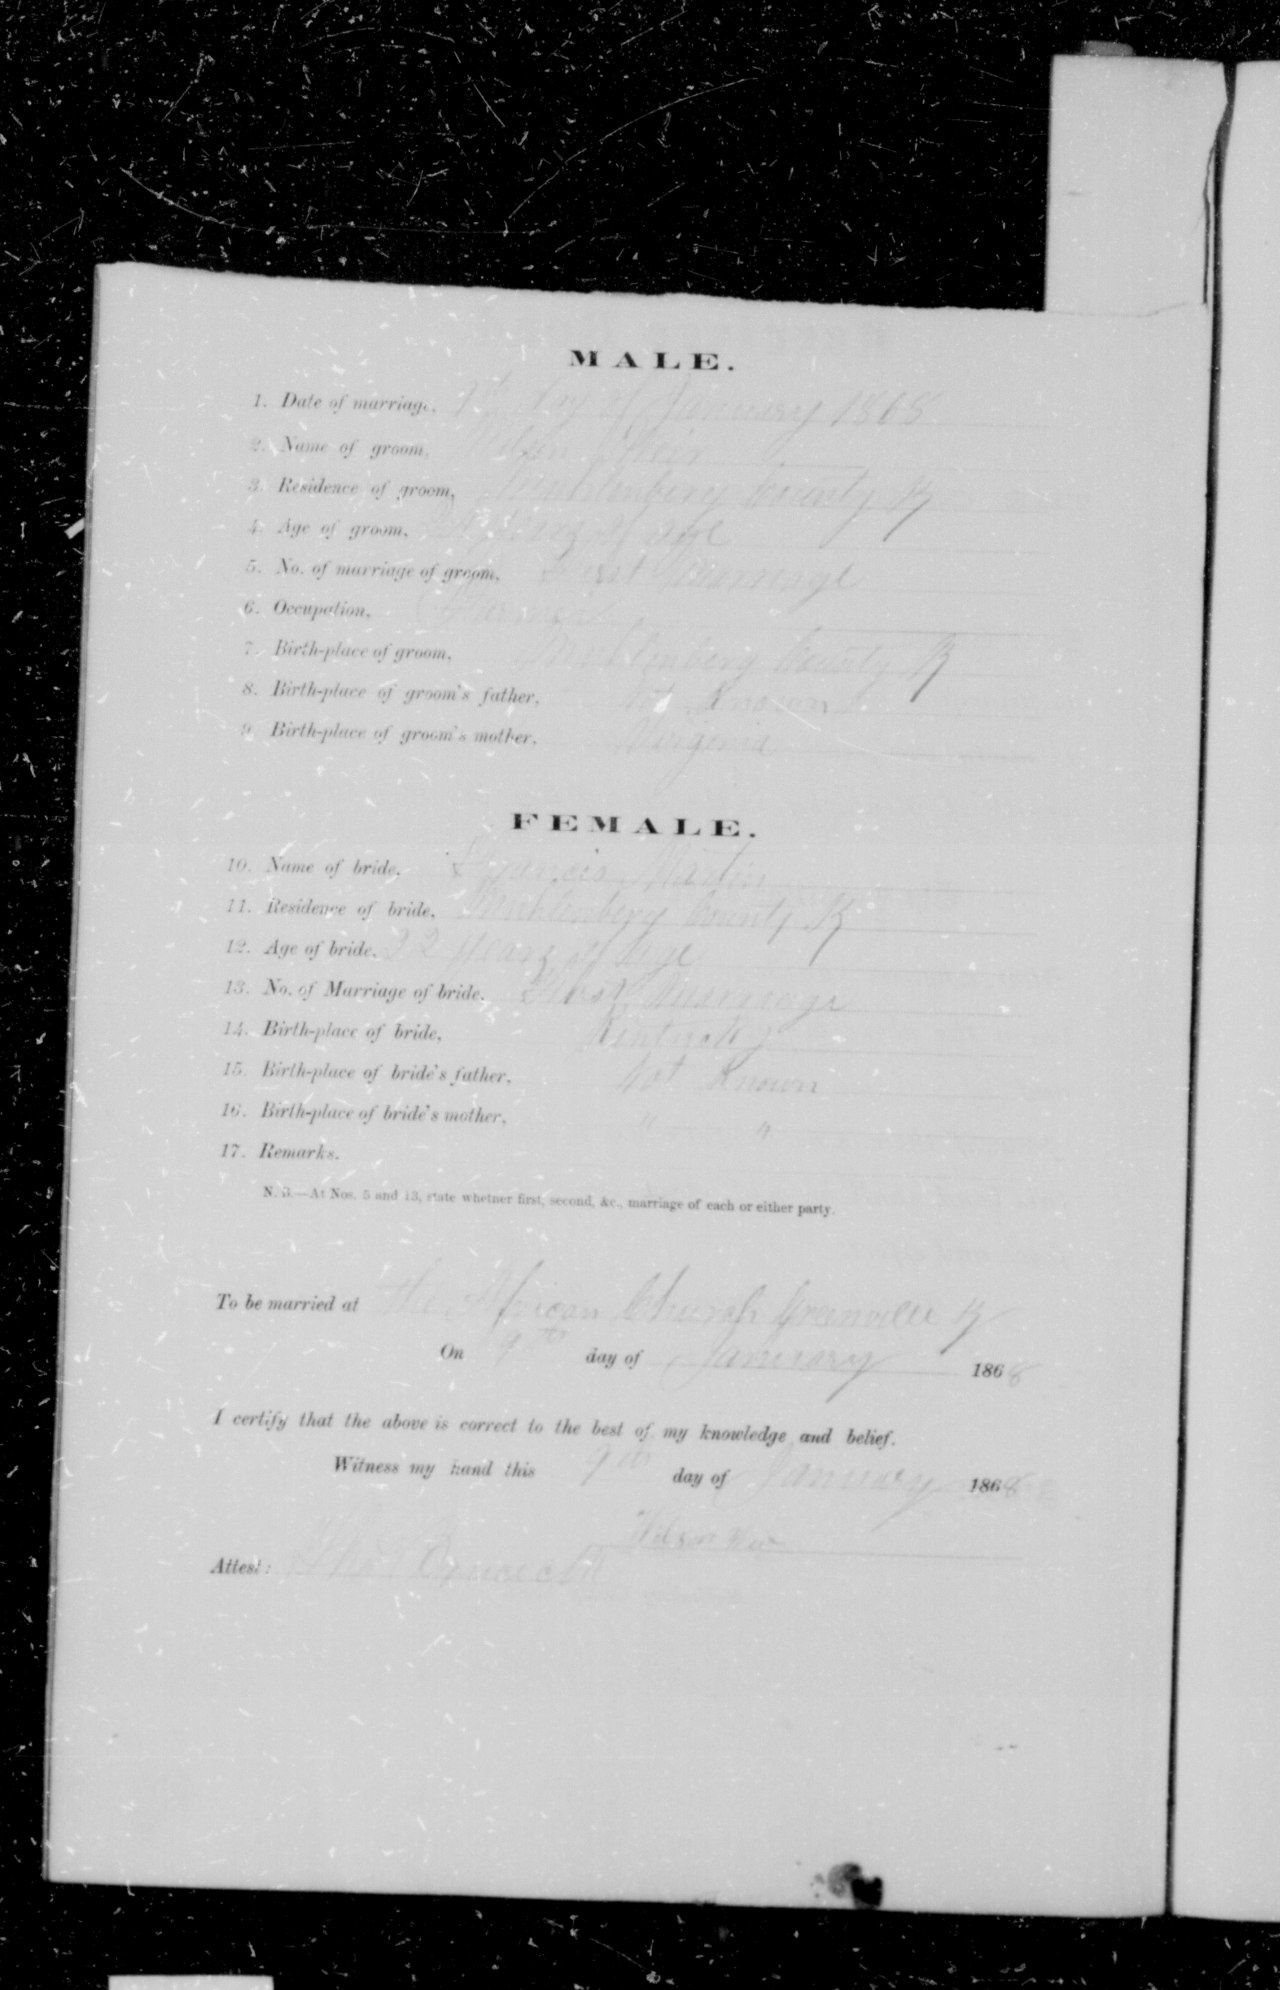 MALE.
1. Date of marriage, 9th day of January 1868
2. Name of groom, Wilson Weir
3. Residence of groom, Muhlenberg County Ky
4. Age of groom, years of age
5. No. of marriage of groom, First Marriage
6. Occupation, Farmer
7. Birth-place of groom, Muhlenberg County Ky
8. Birth-place of groom's father, Not Known
9. Birth-place of groom's mother, Virginia
FEMALE.
10. Name of bride, Francis Martin
11. Residence of bride, Muhlenberg County Ky
12. Age of bride, 22 years of age
13. No. of Marriage of bride, First Marriage
14. Birth-place of bride, Kentucky
15. Birth-place of bride's father, Not Known
16. Birth-place of bride's mother, " "
17. Remarks.
N. B.—At Nos. 5 and 13, state whether first, second, &c., marriage of each or either party.
To be married at the African Church Greenville Ky
On 9th day of January 1868
I certify that the above is correct to the best of my knowledge and belief.
Witness my hand this 9th day of January 1868
Wilson Weir
Attest: